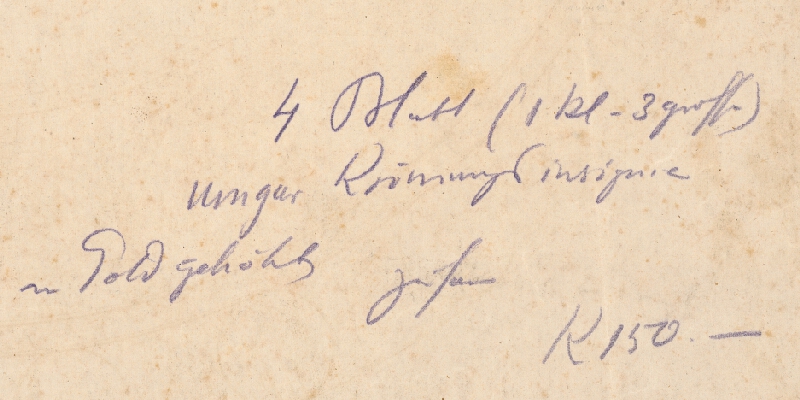 4 Blatt (1 kl - 3 grosse)
Ungar Krönungsinsignie
m Gold gehöht zusam
K 150.—